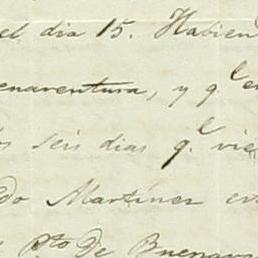 el dia 15. Habien
enaventura, y q.^l e
os seis dias q.^l vie
do Martinez en
P.^to De Buenav